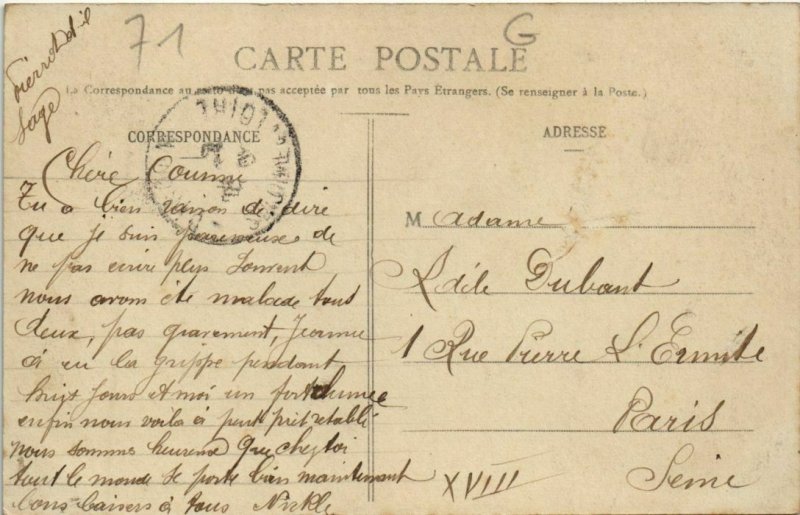 71
G
Pierrot est-il
sage
CARTE POSTALE
La Correspondance au recto n'est pas acceptée par tous les Pays Étrangers. (Se renseigner à la Poste.)
CORRESPONDANCE
ADRESSE
Chère Cousine
Tu a bien raison de dire
que je suis paresseuse de
ne pas ecrire plus souvent
nous avons été malade tous
deux, pas gravement, Jeanne
à eu la grippe pendant
huit jours et moi un fort rhume
enfin nous voila à peut prêt rétabli
nous sommes heureuse que chez toi
tout le monde se porte bien maintenant
bons baisers à tous
Madame
Adèle Dubant
1 Rue Pierre L'Ermite
Paris
XVIII Seine